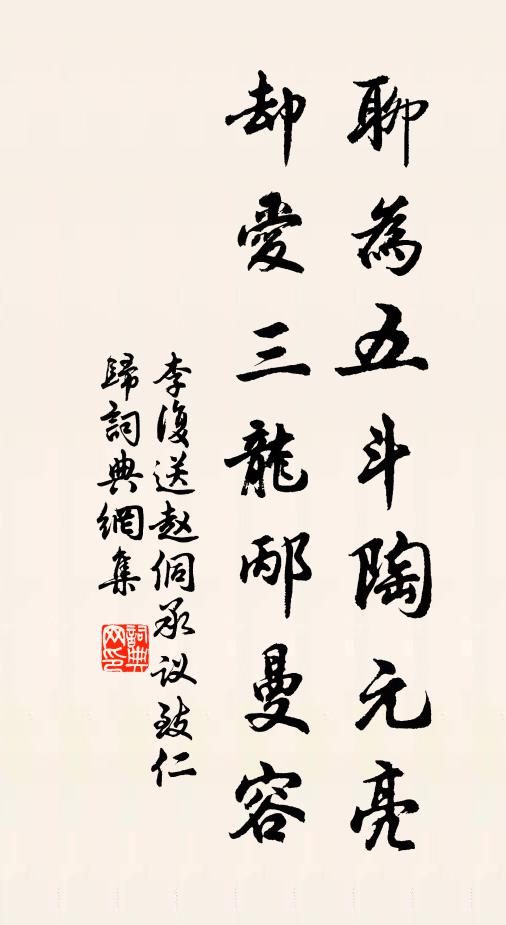 聊為五斗陶元亮
却愛三龍邴曼容
李復送赵侗承议致仁
歸詞典網集
詞典
网印